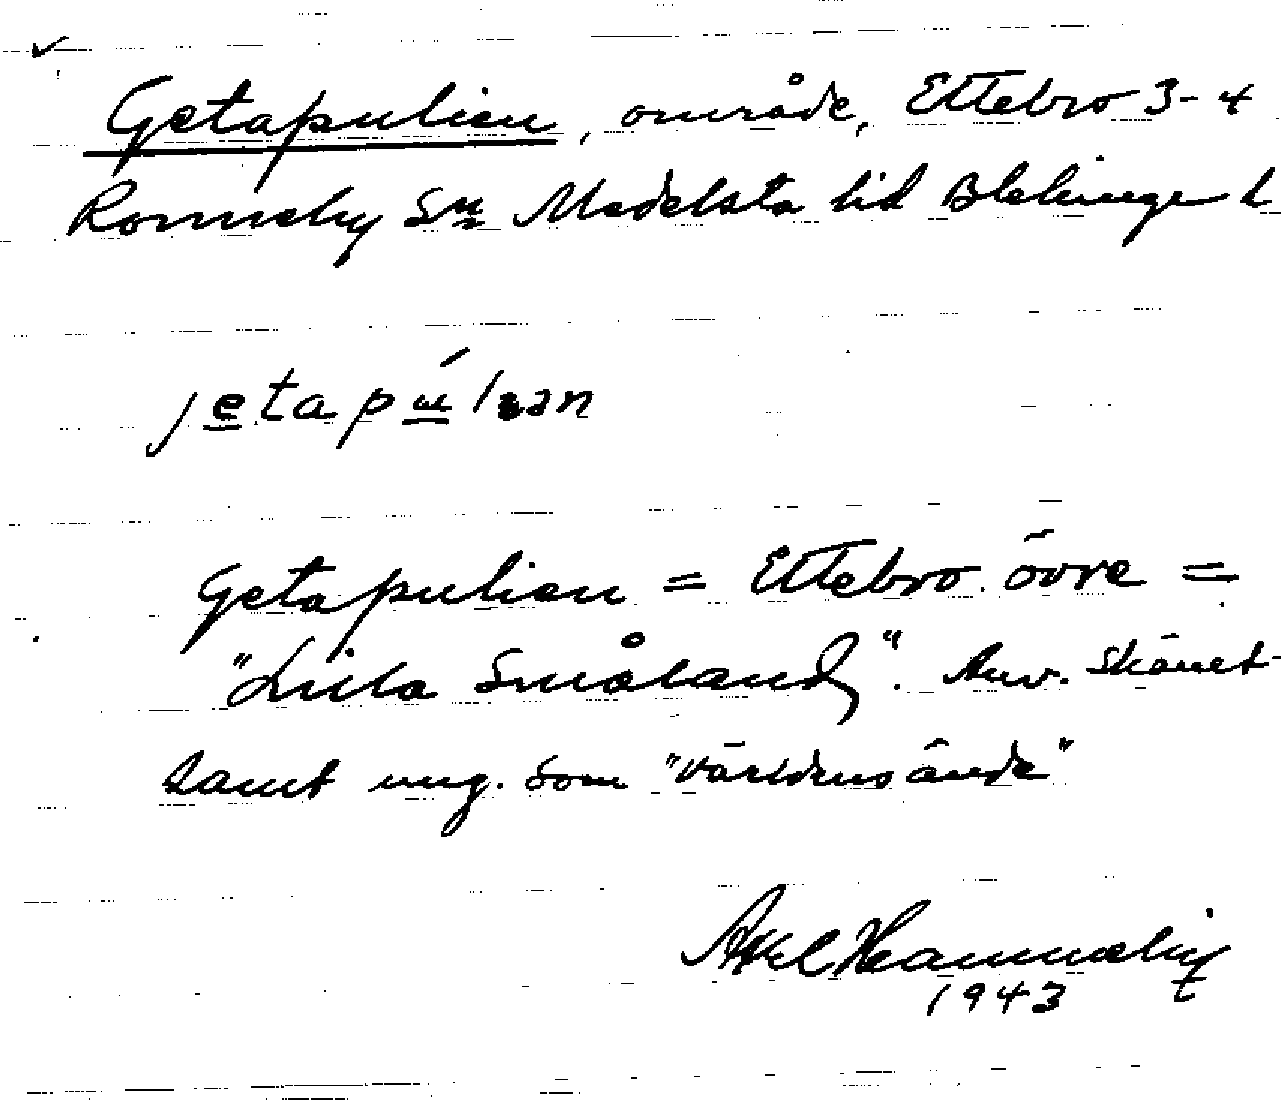 Getapulien, område, Ettebro 3-4
Ronneby Sn Medelsta hd Blekinge l
jetapúlian
Getapulien = Ettebro övre =
"Lilla Småland". Anv. skämt-
samt ung. som "världens ände"
Axel
1943